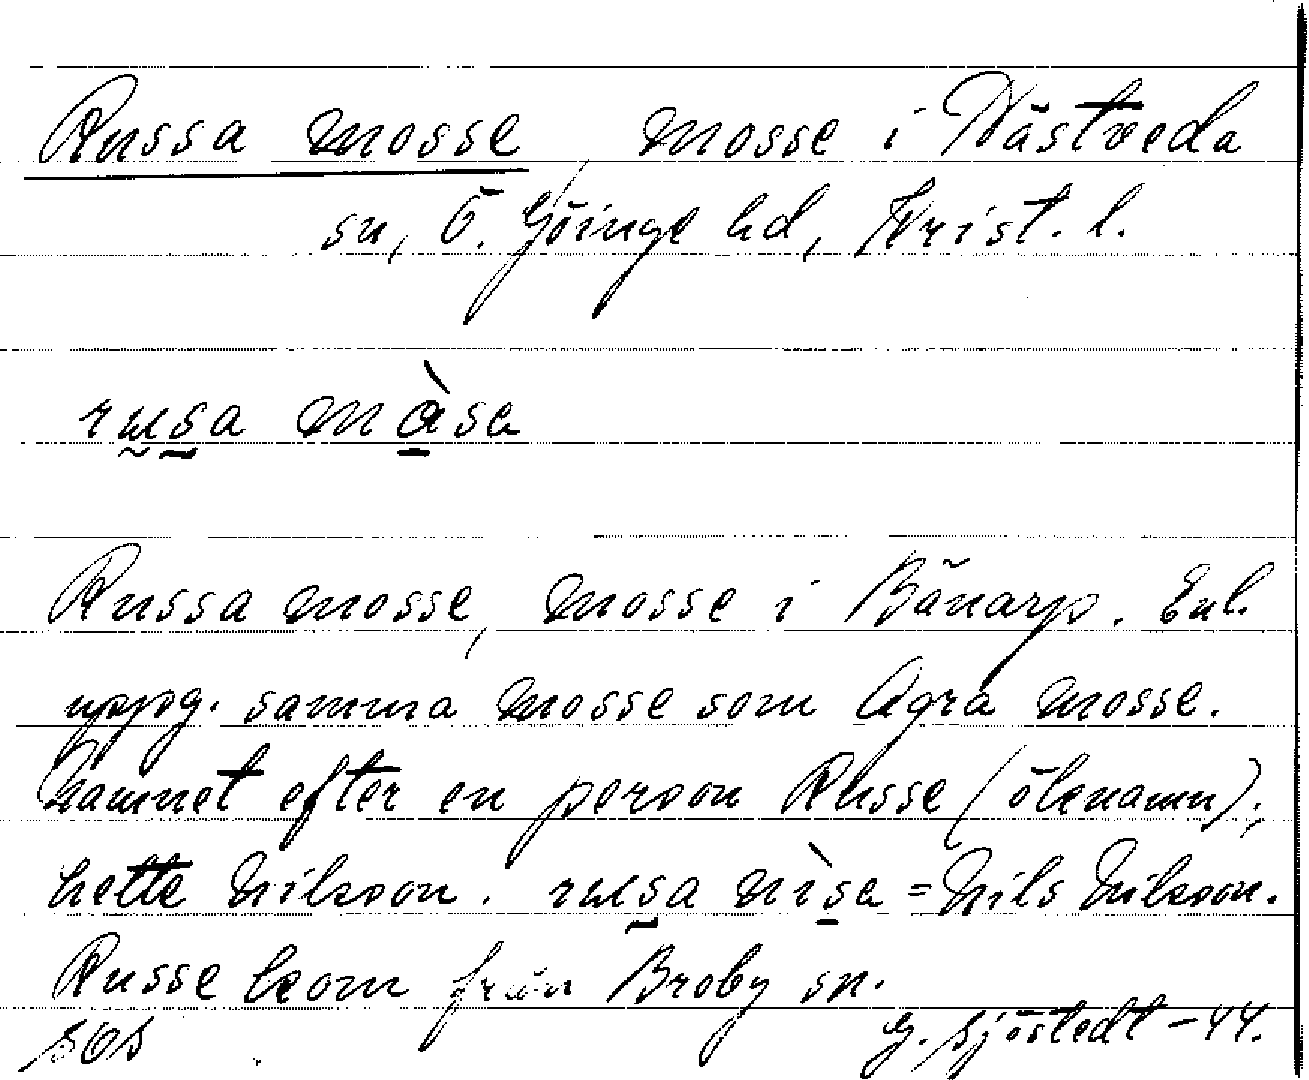 Russa mosse, mosse i Västveda
sn, Ö. Göinge hd, Krist. l.
rusa måsa
Russa mosse, mosse i Bånarp. Enl.
uppg. samma mosse som Agra mosse.
Namnet efter en person Russe (öknamn);
hette Nilsson. rusa nisa = Nils Nilsson.
Russe kom från Broby sn.
G. Sjöstedt - 44.